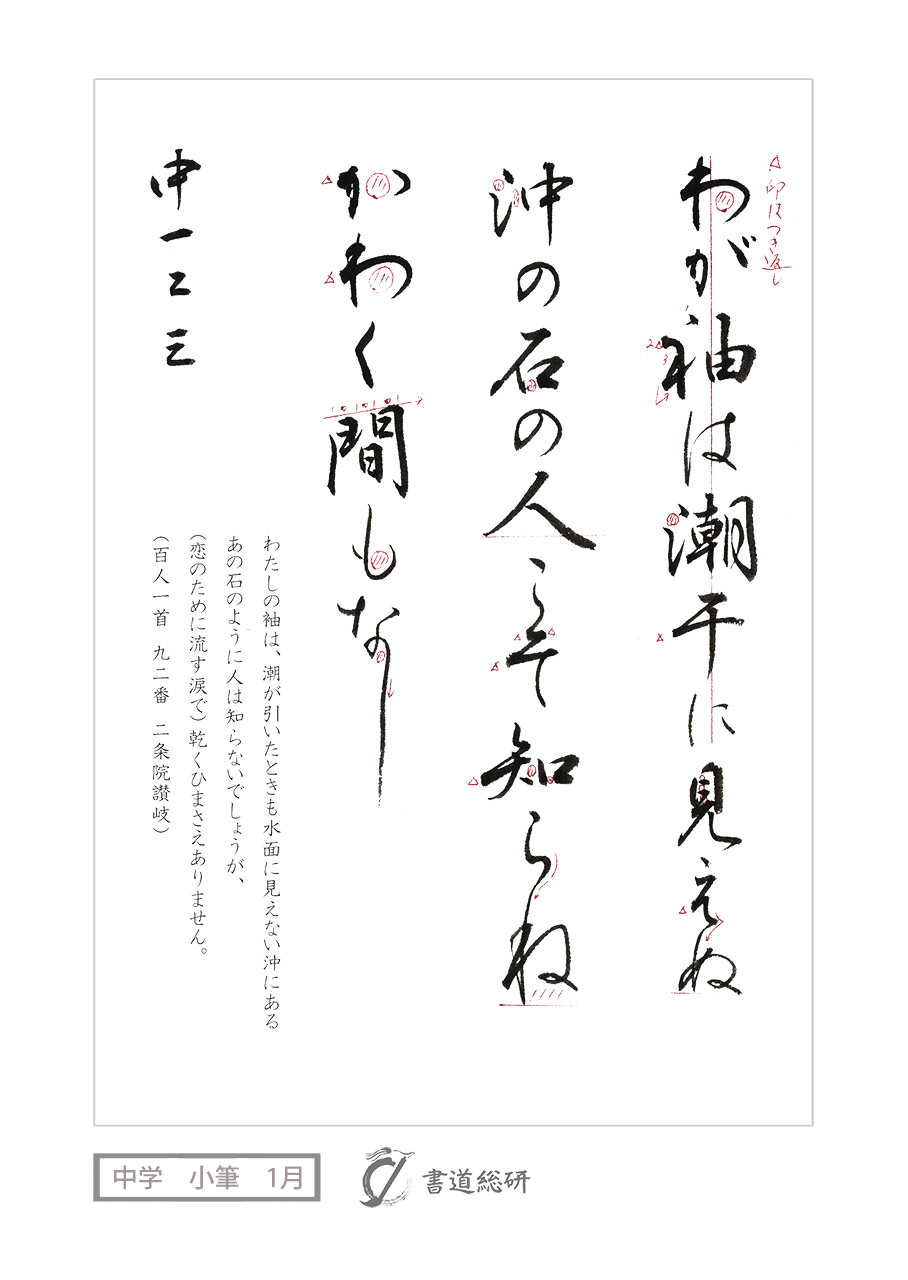 △印はつき返し
わが袖は潮干に見えぬ
沖の石の人こそ知らね
かわく間もなし
中一二三
わたしの袖は、潮が引いたときも水面に見えない沖にある
あの石のように人は知らないでしょうが、
(恋のために流す涙で)乾くひまさえありません。
(百人一首 九二番 二条院讃岐)
中学 小筆 1月
書道総研